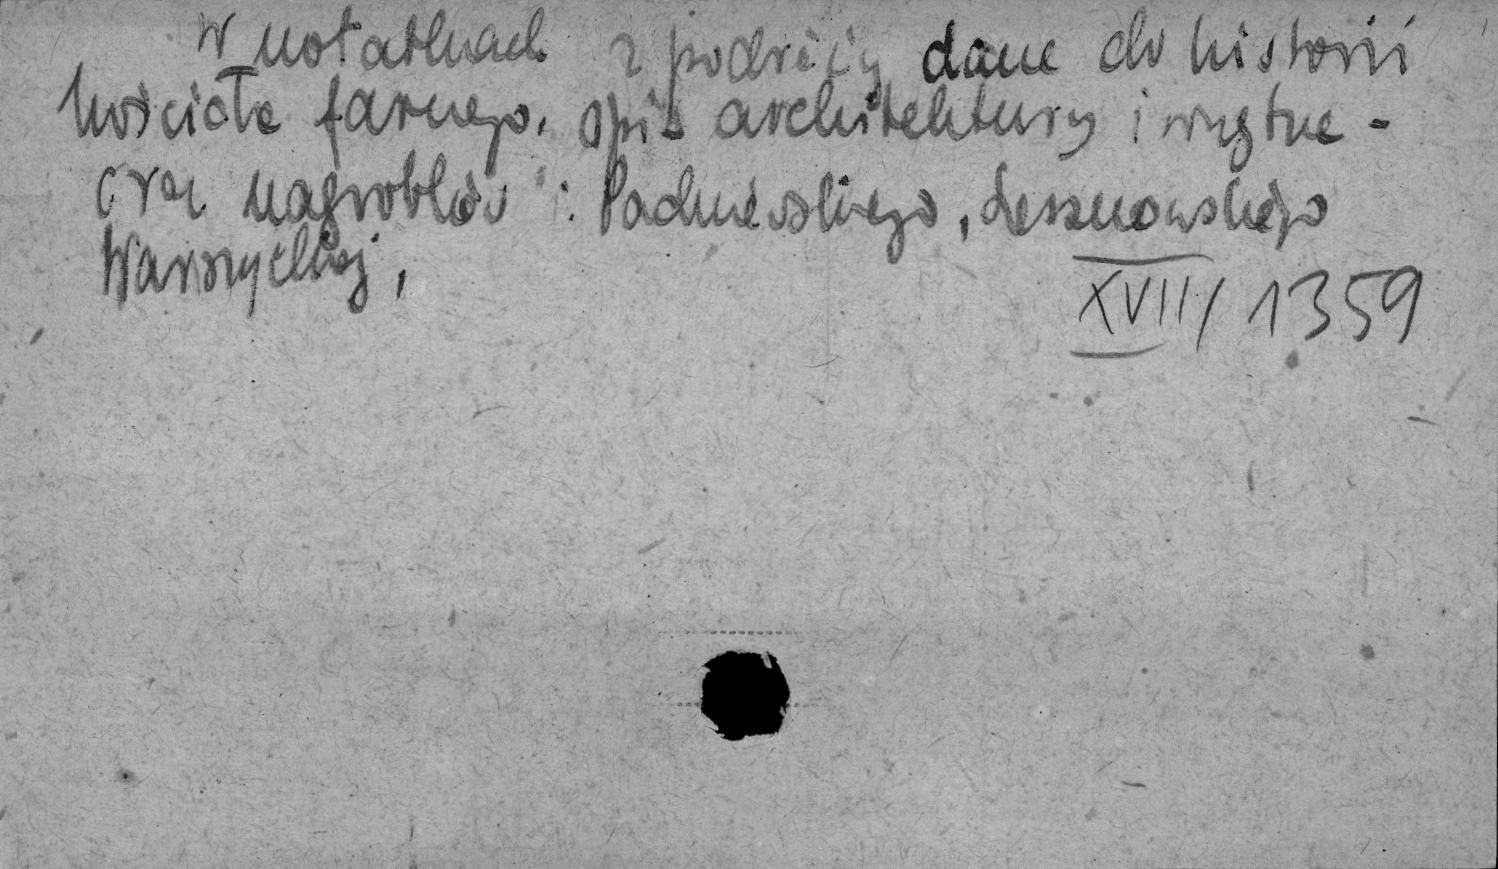 W notatkach z podróży dane do historii
kościoła farnego, opis architektury i wnętrz -
oraz nagrobków : Padniewskiego, Lesznowskiego
Warszyckiej,
XVII/1359